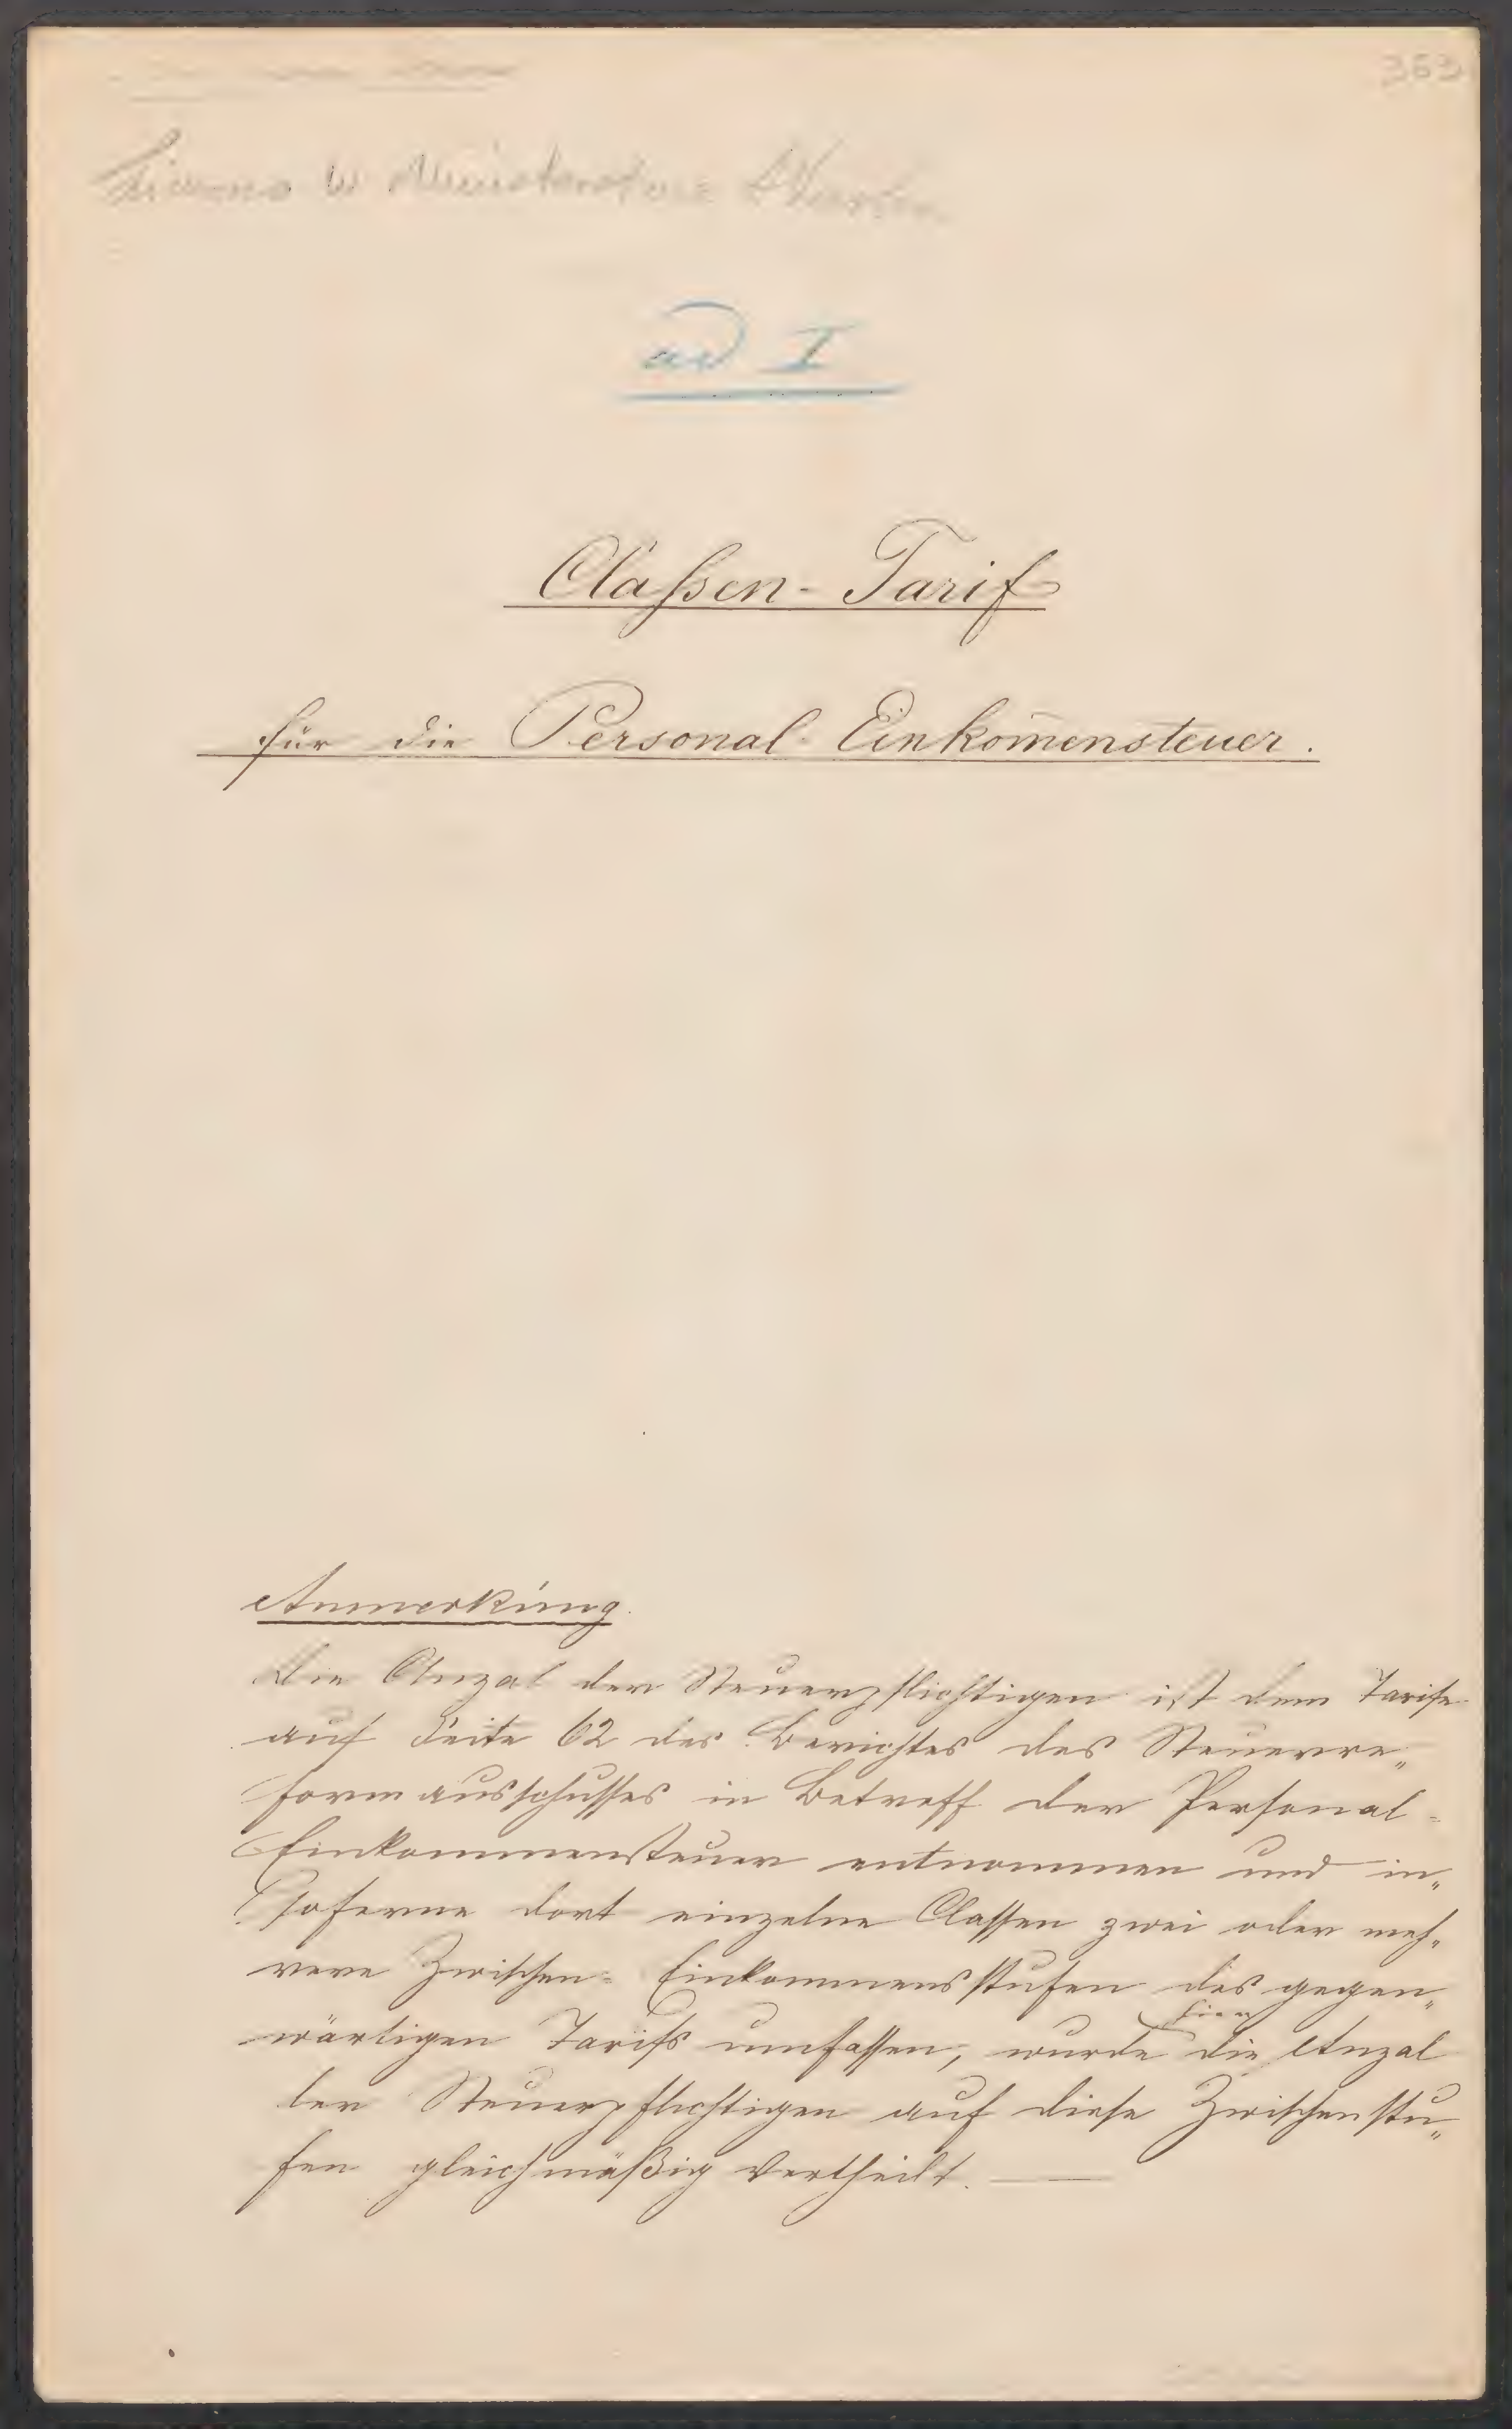 363
ad I
Claßen-Tarif
für die Personal-Einkom̄ensteuer.
Anmerkung.
Die Anzal der Steuerpflichtigen ist dem Tarife
auf Seite 62 des Berichtes des Steuerre„
formausschusses in Betreff der Personal-
Einkommensteuer entnommen und in„
soferne dort einzelne Classen zwei oder meh„
rere Zwischen-Einkommensstufen des gegen„
hier
wärtigen Tarifs umfassen, wurde die Anzal
der Steuerpflichtigen auf diese Zwischenstu„
fen gleichmäßig vertheilt.